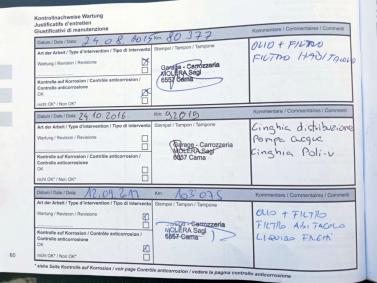 Kontrollnachweise Wartung
Justificatifs d'entretien
Giustificativi di manutenzione
Datum / Date / Data 24 08 2015 Km 80377
Kommentare / Commentaires / Commenti
Art der Arbeit / Type d'intervention / Tipo di intervento
Stempel / Tampon / Tampone
Wartung / Revision / Revisione
Kontrolle auf Korrosion / Contrôle anticorrosion /
Controllo anticorrosione
OK
nicht OK* / Non OK*
Garage - Carrozzeria
MOLERA Sagl
6557 Cama
OLIO + FILTRO
FILTRO ABITACOLO
Datum / Date / Data 24.10.2016 Km 92015
Kommentare / Commentaires / Commenti
Art der Arbeit / Type d'intervention / Tipo di intervento
Stempel / Tampon / Tampone
Wartung / Revision / Revisione
Kontrolle auf Korrosion / Contrôle anticorrosion /
Controllo anticorrosione
OK
nicht OK* / Non OK*
Garage - Carrozzeria
MOLERA Sagl
6557 Cama
Cinghia distribuzione
Pompa acqua
Cinghia Poli-v
Datum / Date / Data 12.09. Km 103075
Kommentare / Commentaires / Commenti
Art der Arbeit / Type d'intervention / Tipo di intervento
Stempel / Tampon / Tampone
Wartung / Revision / Revisione
Kontrolle auf Korrosion / Contrôle anticorrosion /
Controllo anticorrosione
OK
nicht OK* / Non OK*
Garage - Carrozzeria
MOLERA Sagl
6557 Cama
OLIO + FILTRO
FILTRO ABITACOLO
LIQUIDO FRENI
60
* siehe Seite Kontrolle auf Korrosion / voir page Contrôle anticorrosion / vedere la pagina controllo anticorrosione